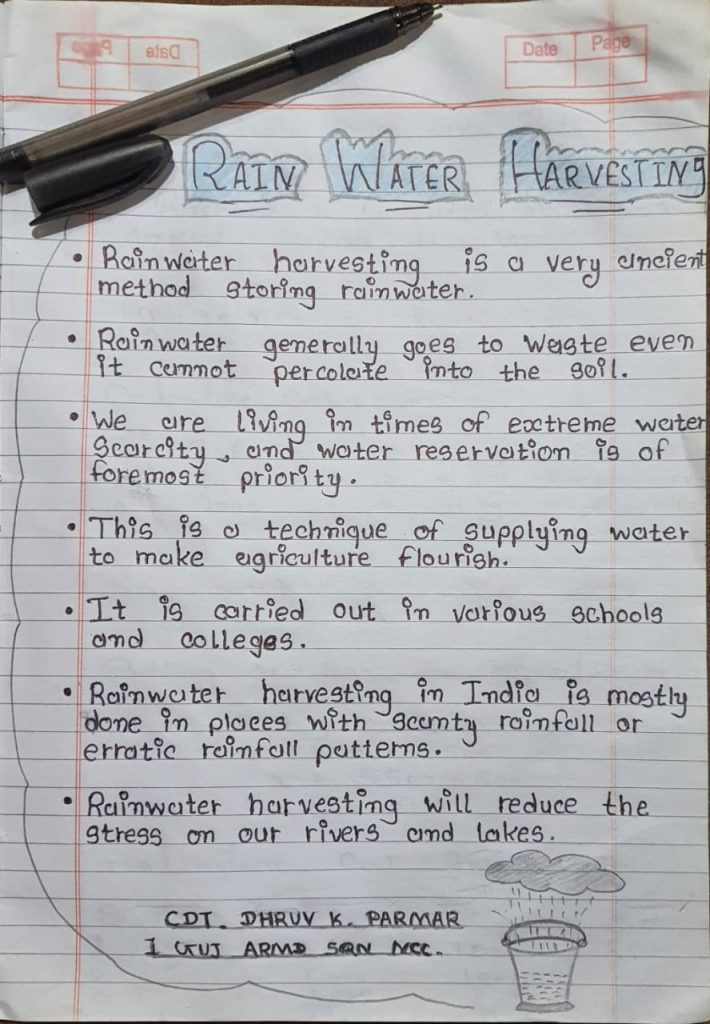 Date Page
Date Page
RAIN WATER HARVESTING
• Rainwater harvesting is a very ancient
method storing rainwater.
• Rainwater generally goes to waste even
it cannot percolate into the soil.
• We are living in times of extreme water
scarcity, and water reservation is of
foremost priority.
• This is a technique of supplying water
to make agriculture flourish.
• It is carried out in various schools
and colleges.
• Rainwater harvesting in India is mostly
done in places with scanty rainfall or
erratic rainfall patterns.
• Rainwater harvesting will reduce the
stress on our rivers and lakes.
CDT. DHRUV K. PARMAR
1 GUJ ARMD SQN NCC.